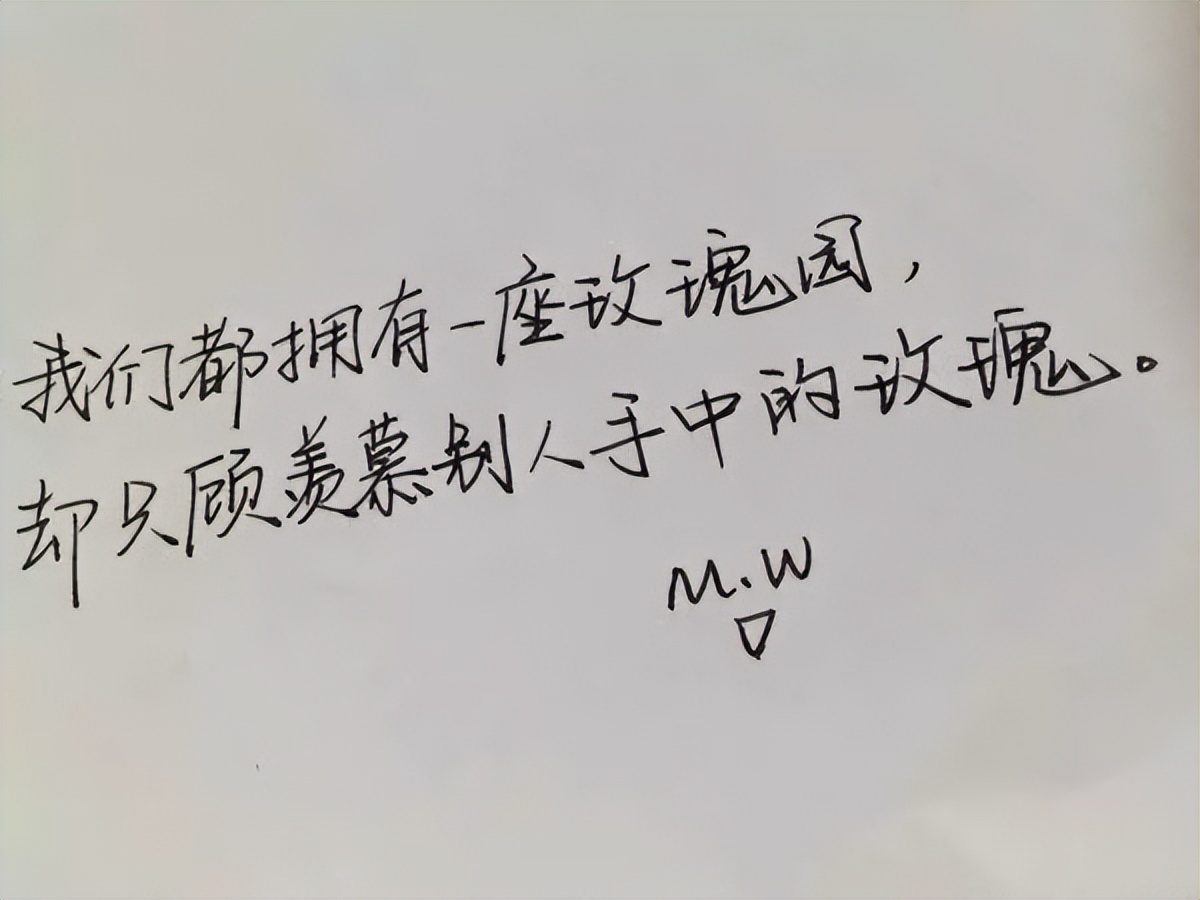 我们都拥有一座玫瑰园，
却只顾羡慕别人手中的玫瑰。
M.W